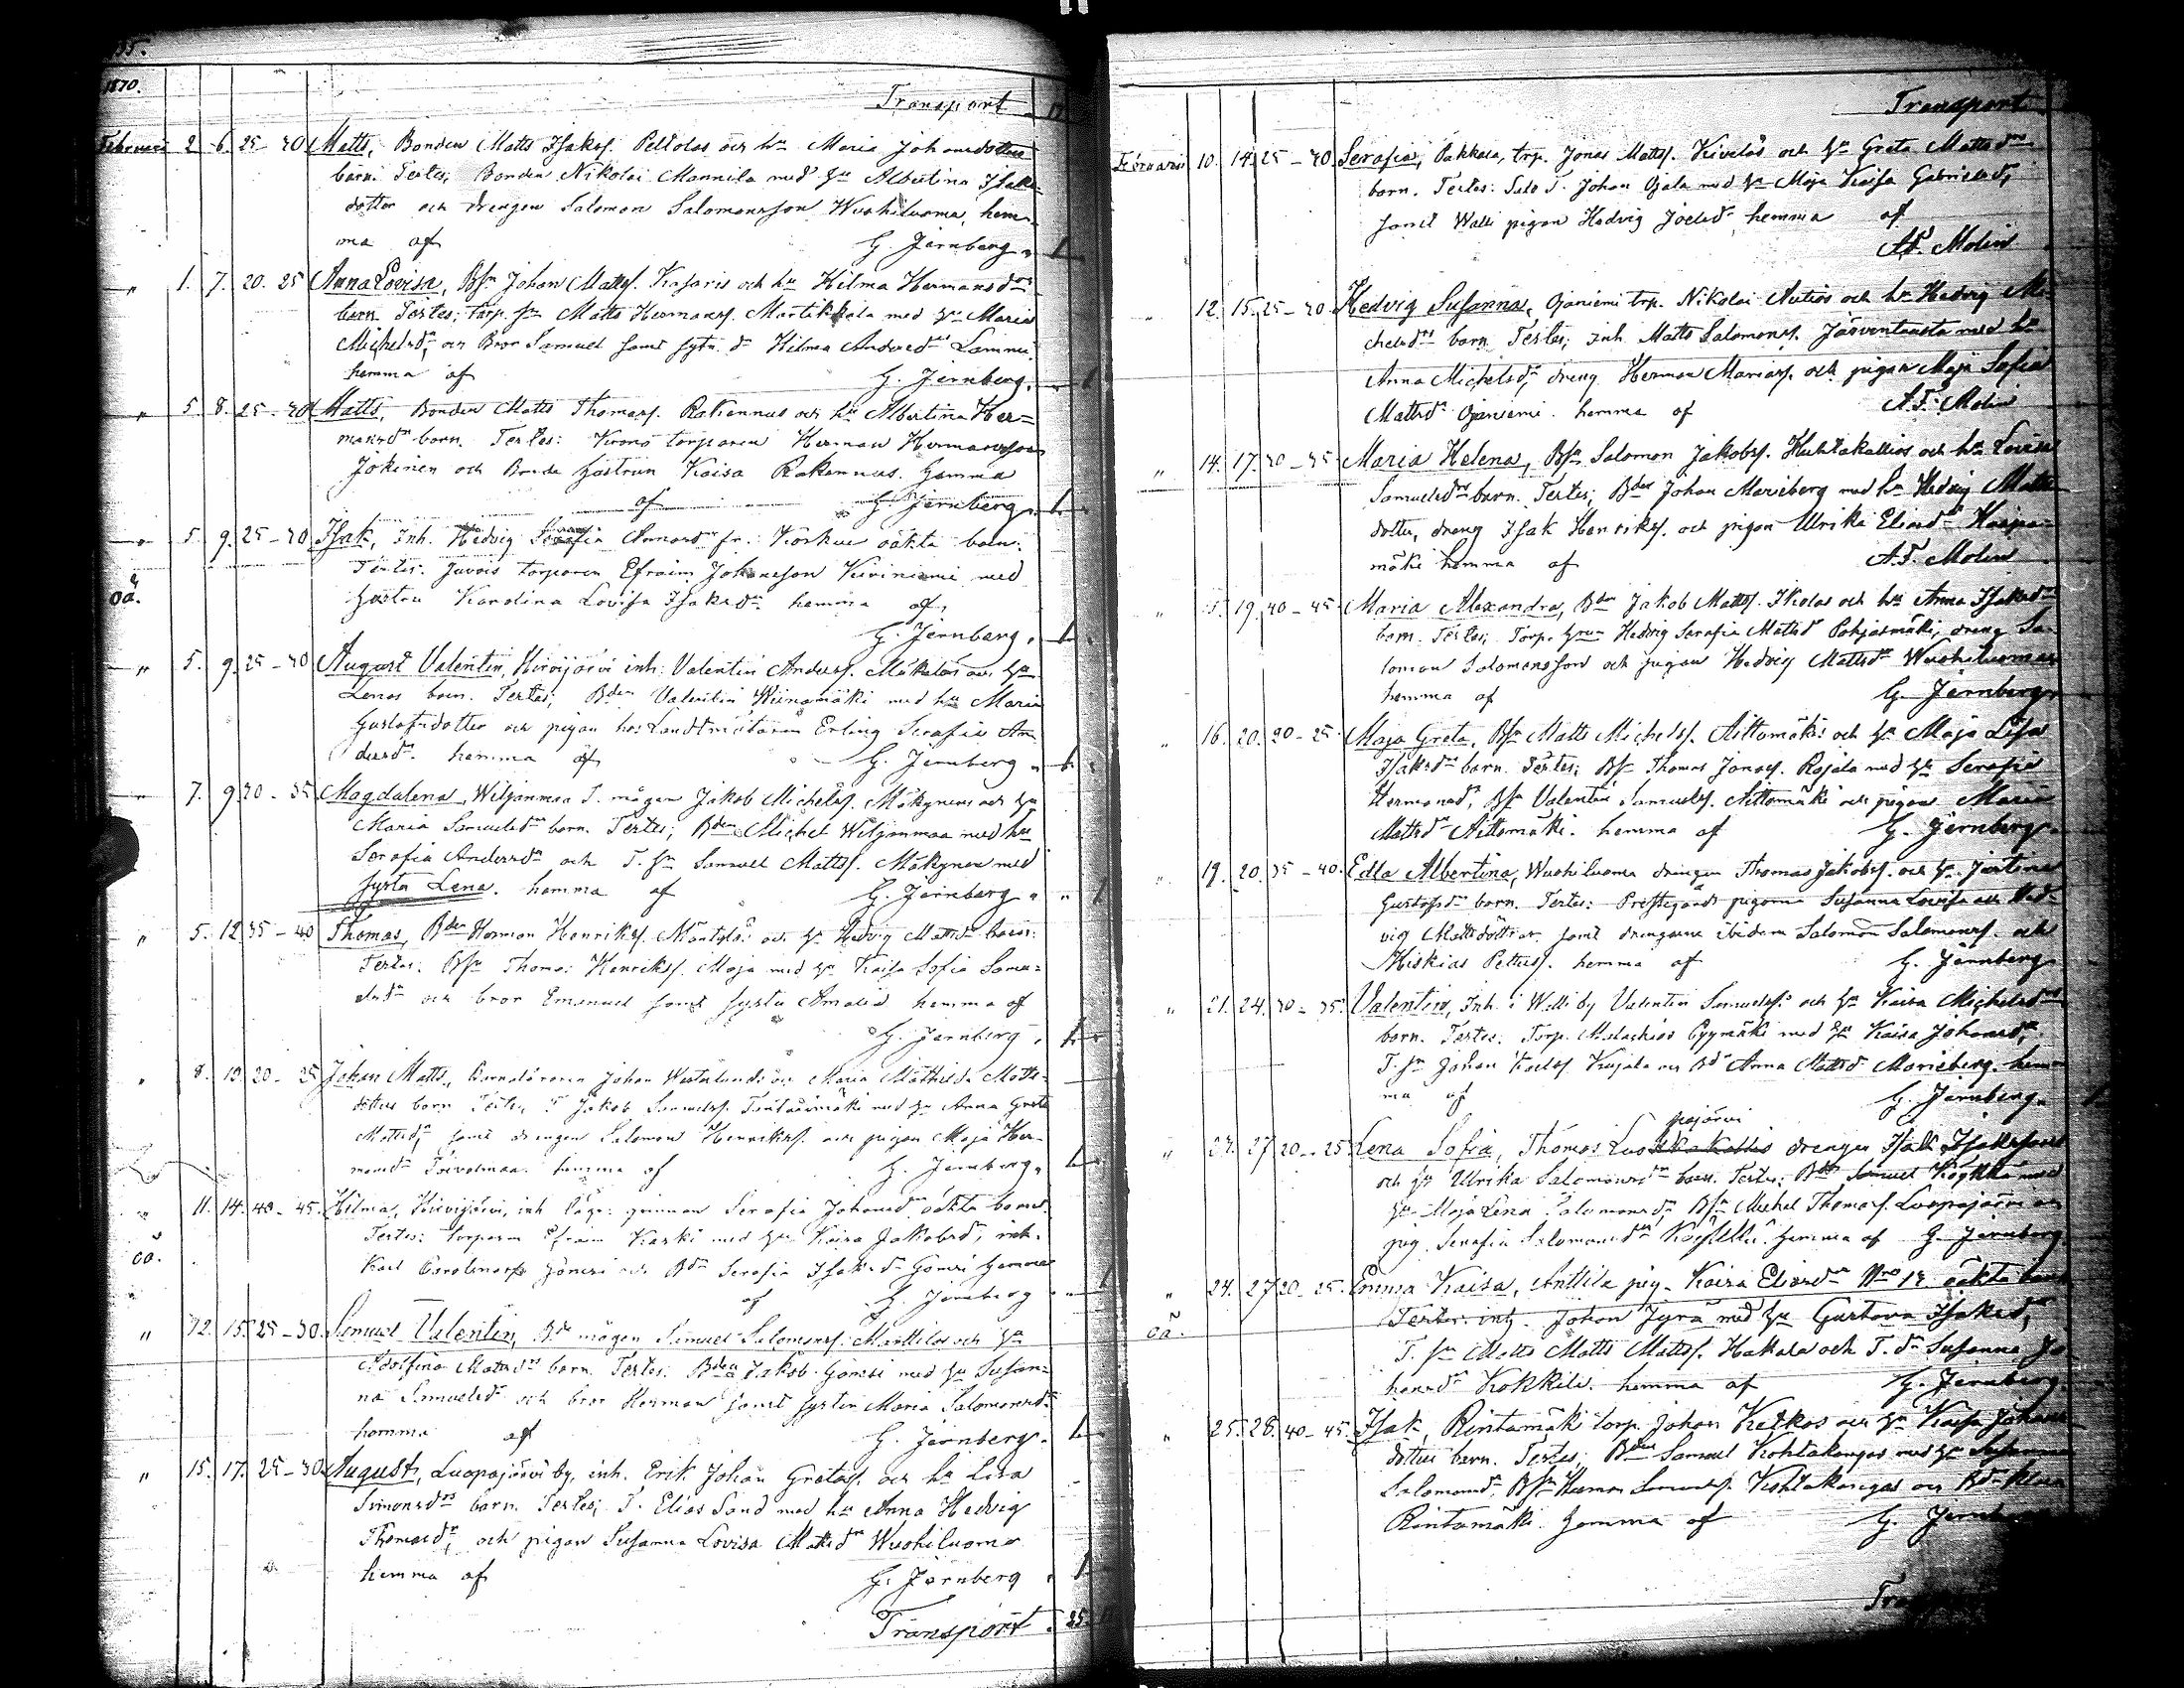 1870.
Transport 17
Februari 2. 6. 25-30 Matts, Bonden Matts Isaks. Peltolas och hu Maria Johansdotters
barn. Testes; Bonden Nikolai Mannila med hu Albertina Isaks-
dotter och drengen Salomon Salomonsson Wuohiluoma, hem-
ma af G. Jernberg. 1
" 1. 7. 20-25 Anna Lovisa, Bsn Johan Matts. Kasaris och hu Hilma Hermansdrs
barn. Testes; torp. sn Matts Hermans. Martikkala med hu Maria
Michelsdr, och Bror Samuel samt syst. dr Hilma Andersdr Lammi.
hemma af G. Jernberg. 1
" 5. 8. 25-30 Matts, Bonden Matts Thomas. Rakennus och hu Albertina Her=
mansdrs barn. Testes: Krono torparen Herman Hermansson
Jokinen och Bonde hustrun Kaisa Rakennus. Hemma
af G. Jernberg. 1
" 5. 9. 25-30 Isak, Inh. Hedvig Serafia Annasdr fr. Koskue oäkta barn.
Testes: Juvois torparen Efraim Johansson Kiviniemi med
oä. hustru Karolina Lovisa Isaksdr hemma af
G. Jernberg. 1
" 5. 9. 25-30 August Valentin, Hirvijärvi inh. Valentin Anders. Mäkeläs och hu
Lenas barn. Testes; Bden Valentin Hiinamäki med hu Maria
Gustafsdotter och pigan hos Landtmätaren Erling Serafia An-
dersdr. hemma af G. Jernberg. 1
" 7. 9. 30-35 Magdalena, Wiljanmaa T. mågen Jakob Michels. Mäkynens och hu
Maria Samuelsdrs barn. Testes; Bden Michel Wiljanmaa med hu
Serafia Andersdr och T. sn Samuel Matts. Mäkynen med
syster Lena. hemma af G. Jernberg " " 1
" 5. 12. 35-40 Thomas, Bden Herman Henriks. Mäntylä: och hu Hedvig Mattsdrs barn:
Testes: Bsn Thomas Henriks. Moja med hu Kaisa Sofia Samu=
elsdr och bror Emanuel samt syster Amalia hemma af
G. Jernberg. 1
" 8. 13. 20-25 Johan Matts, Barnaläraren Johan Westerlunds och Maria Mathilda Matts-
dotters barn Testes, T. Jakob Samuels. med hu Anna Greta
Mattsdr, samt drengen Salomon Henriks. och pigan Maja Her-
mansdr hemma af G. Jernberg. 1
" 11. 14. 40-45. Hilma, Hirvijärvi, inh. qvinnan Serafia Johansdr oäkta barn.
oä. Testes: torparen Efraim Karki med hu Kaisa Jakobsdr, inh.
Karl Carolinas. Jönsi och Bdr Serafia Isaksdr Gömsi hemma
af G. Jernberg " 1
" 12. 15. 25-30. Samuel Valentin, Bde mågen Samuel Salomons. Mantilas och hu
Adolfina Mattsdrs barn. Testes: Bden Jakob Gömsi med hu Susan=
na Samuelsdr och bror Herman samt syster Maria Salomonsdr
hemma af G. Jernberg. 1
" 15. 17. 25-30. August, Luopajärvi by, inh. Erik Johan Gretas. och hu Lisa
Simonsdrs barn. Testes; T. Elias Sand med hu Anna Hedvig
Thomasdr, och pigan Susanna Lovisa Mattsdr Wuohiluoma
hemma af G. Jernberg " 1
Transport 25
Transport
Februari 10. 14. 25-30. Serafia, Pakkala, trp. Jonas Matts. Kiveläs och hu Greta Mattsdrs
barn. Testes: T. Johan Ojala med hu Maja Kaisa Gabrielsd,
samt Walli pigan Hedvig Joelsdr hemma af
A.F. Molin
" 12. 15. 25-30. Hedvig Susanna, Ojaniemi trp. Nikolai Autios och hu Hedvig Mi-
chelsdrs barn. Testes; inh. Matts Salomons. Järventausta med hu
Anna Michelsdr, dreng Herman Marias. och pigan Maja Sofia
Mattsdr Ojaniemi. hemma af A.F. Molin
" 14. 17. 30-35 Maria Helena, Bsn Salomon Jakobs. Huhtakallios och hu Lovisa
Samuelsdrs barn. Testes; Bden Johan Marieberg med hu Hedvig Matts-
dotter, dreng Isak Henriks. och pigan Ulrika Eliasdr
mäki hemma af A.F. Molin
" 19. 40-45 Maria Alexandra, Bden Jakob Matts. Ikolas och hu Anna Isaksdrs
barn. Testes; Torp. hun Hedvig Serafia Mattsd Pohjasmäki, dreng Sa-
lomon Salomonsson och pigan Hedvig Mattsdr Wuohiluoma
hemma af G. Jernberg
" 16. 20. 20-25. Maja Greta, Bsn Matts Michels. Aittomäki: och hu Maja Lisa
Isaksdrs barn. Testes; Bsn Thomas Jonas. Rajala med hu Serafia
Hermansdr, Bsn Valentin Samuels. Aittomäki och pigan Maria
Mattsdr Aittomäki. hemma af G. Jernberg.
" 19. 20. 35-40. Edla Albertina, Wuohiluoma drengen Thomas Jakobs. och hu Justina
Gustafsdrs barn. Testes: Prestegårds pigorna Susanna Lovisa och Hed-
vig Mattsdöttrar samt drengarne ibidem Salomon Salomons. och
Hiskias Petters. hemma af G. Jernberg
" 21. 24. 30-35. Valentin, Inh. i Walli by Valentin Samuels: och hu Kaisa Michelsdrs
barn. Testes: Torp. Malachias Pyymäki med hu Kaisa Johansdr,
T. sn Johan Kujala och Bdr Anna Mattsdr Marieberg. hem-
ma af G. Jernberg.
pajärvi
" 27. 20-25 Lena Sofia, Thomas Luo drengen Isak Isakssons
och hu Ulrika Salomonsdrs barn. Testes: Bden Samuel Köykkä med
hu Maja Lena Salomonsdr Bsn Michel Thomas. Luopajärvi och
pig. Serafia Salomonsdr Hemma af G. Jernberg
" 24. 27. 20-25. Emma Kaisa, Anttila pig. Kaisa Eliasdr oäkta barn
oä. Testes: inh. Johan Jyrä med hu Gustava Isaksdr,
T. sn Matts Matts Matts. Hakala och T. dr Susanna Jo-
hansdr Kokkila. hemma af G. Jernberg.
" 25. 28. 40-45. Isak, Rintamäki torp. Johan Ketkos och hu Kaisa Johans-
dotters barn. Testes; Bden Samuel Kohtakangas med hu Susanna
Salomonsdr, Bsn Herman Samuels. Kohtakangas och Bdr
Rintamäki. Hemma af G. Jernberg